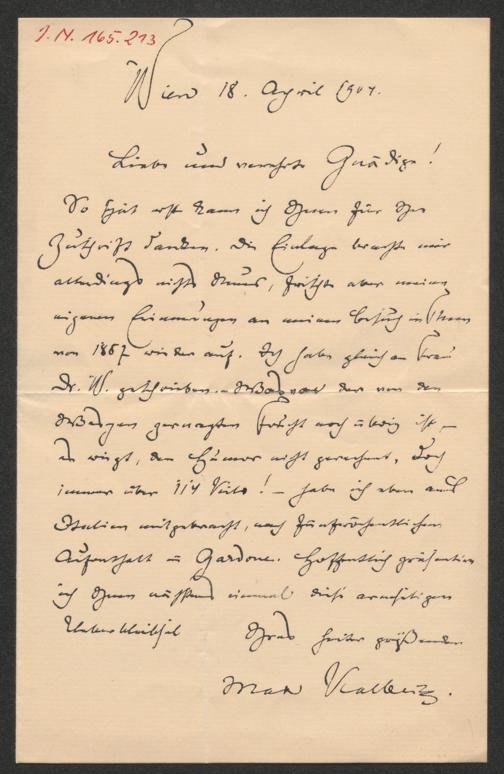 I. N. 165.213
Wien 18. April 1904.
Liebe und verehrte Gnädige!
So spät erst kann ich Ihnen für Ihre
Zuschrift danken. Die Einlage brachte mir
allerdings nichts Neues, frischte aber meine
eigenen Erinnerungen an meinen Besuch in
von 1867 wieder auf. Ich habe gleich an Frau
Dr. W. geschrieben. – der von den
genagten Frucht noch übrig ist, –
er wiegt, den Humor nicht gerechnet, doch
immer über 114 Kilo! – habe ich eben aus
Italien mitgebracht, nach fünfwöchentlichem
Aufenthalt in Gardone. Hoffentlich präsentire
ich Ihnen nächstens einmal diese armseligen
Ueberbleibsel Ihres heiter grüßenden
Max Kalbeck.